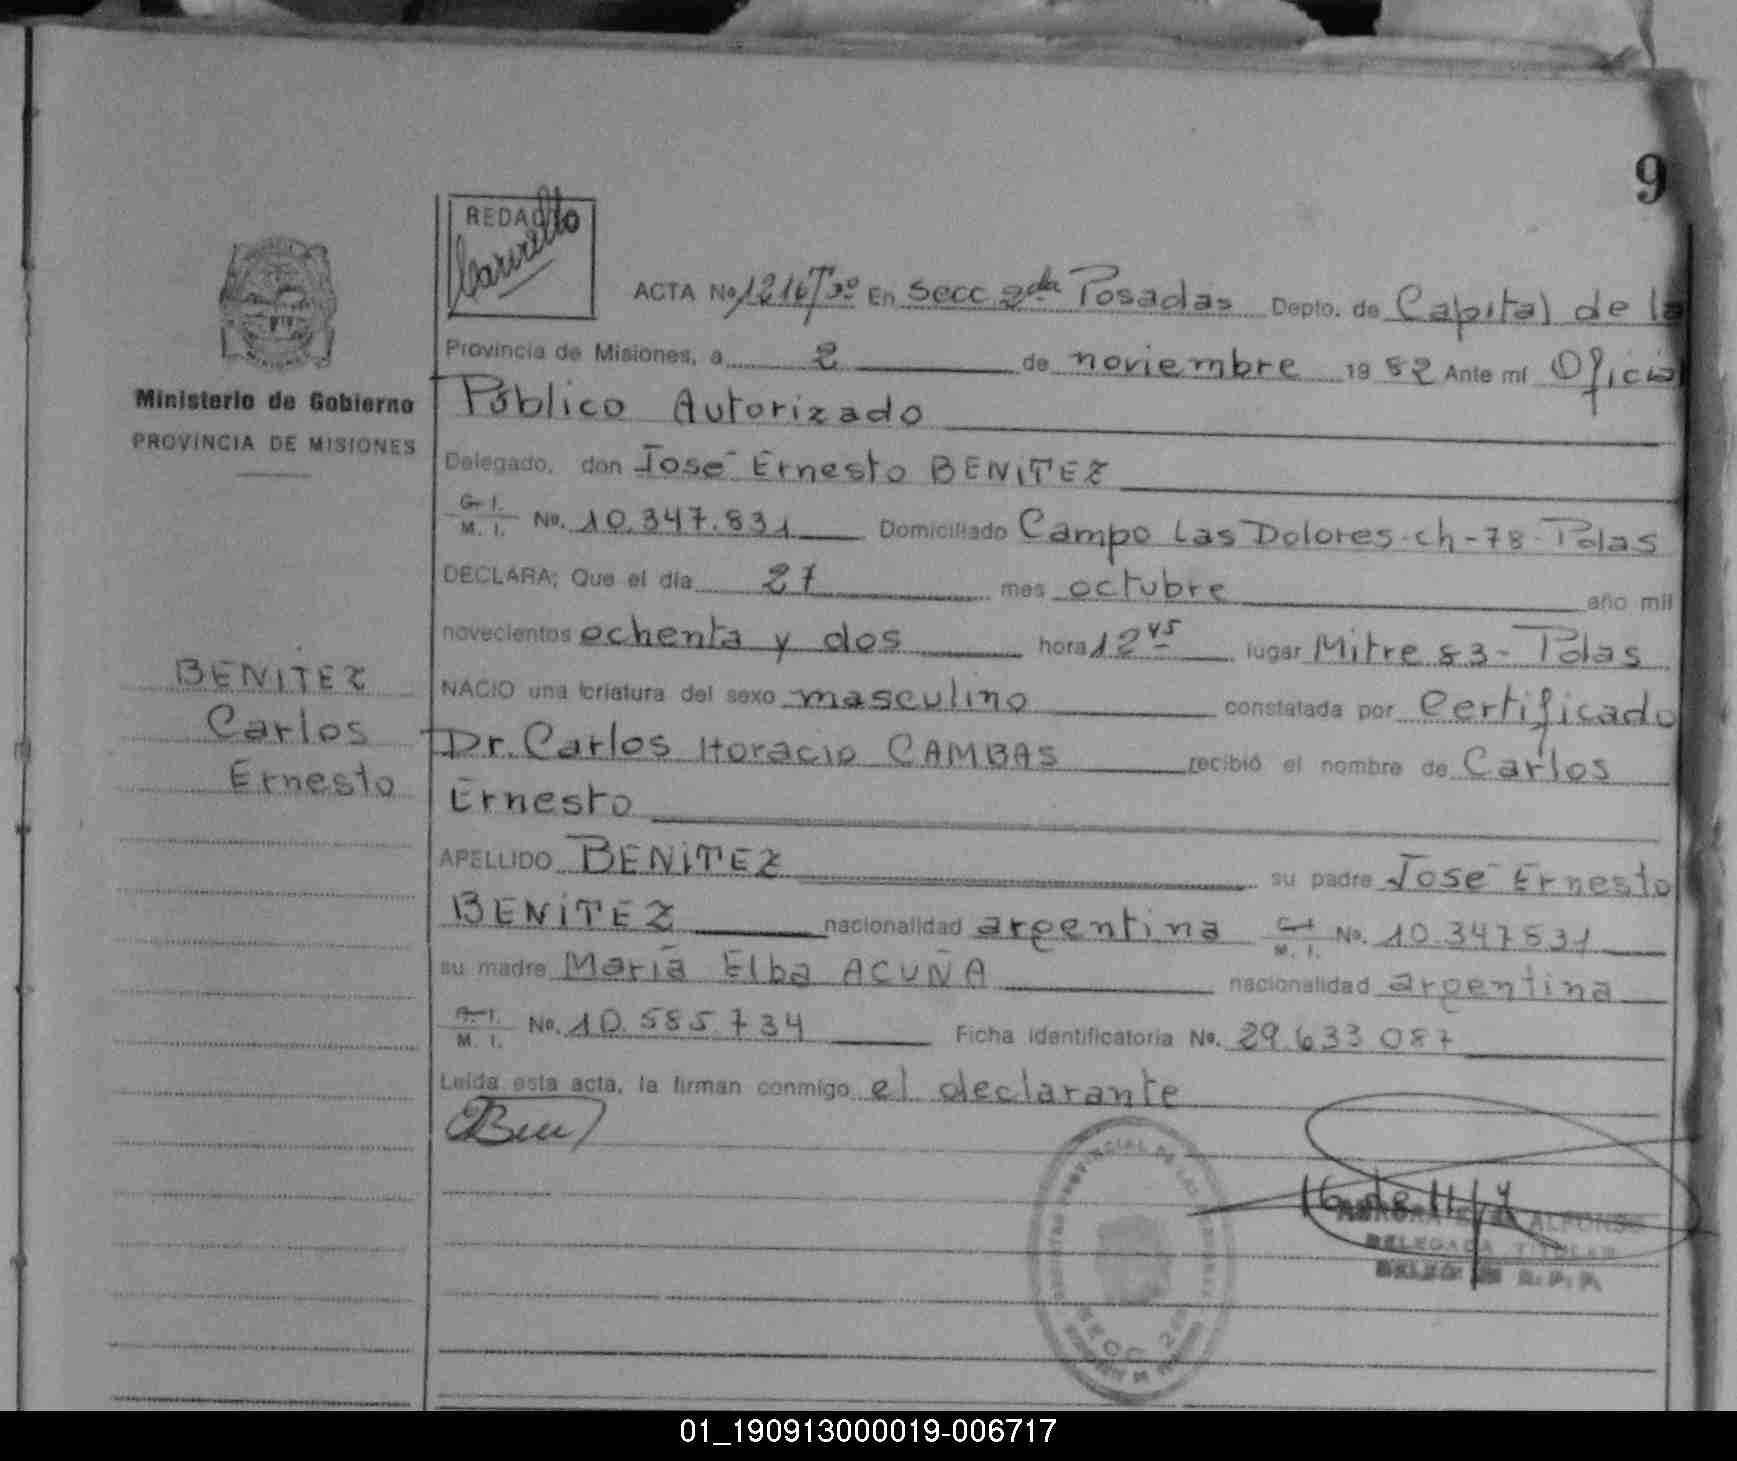 9
REDACTO
ACTA No 1216 Tº En Secc. 2da Posadas Depto. de Capital de la
Provincia de Misiones, a 2 de noviembre 1982 Ante mí Oficial
Ministerio de Gobierno
PROVINCIA DE MISIONES
Público Autorizado
Delegado, don José Ernesto BENITEZ
C. I.
M. I. No. 10.347.831 Domiciliado Campo Las Dolores-ch-78-Pdas
DECLARA; Que el día 27 mes octubre año mil
novecientos ochenta y dos hora 12 45 lugar Mitre 83-Pdas
BENITEZ
Carlos
Ernesto
NACIO una criatura del sexo masculino constatada por Certificado
Dr. Carlos Horacio CAMBAS recibió el nombre de Carlos
Ernesto
APELLIDO BENITEZ su padre José Ernesto
BENITEZ nacionalidad argentina C. I.
M. I. No. 10.347831
su madre María Elba ACUÑA nacionalidad argentina
C. I.
M. I. No. 10.585.734 Ficha identificatoria No. 29.633.087
Leída esta acta, la firman conmigo el declarante
ALFONSO
DELEGADA TITULAR
R. P. P.
PROVINCIAL DE LAS
SECC. 2
01_190913000019-006717